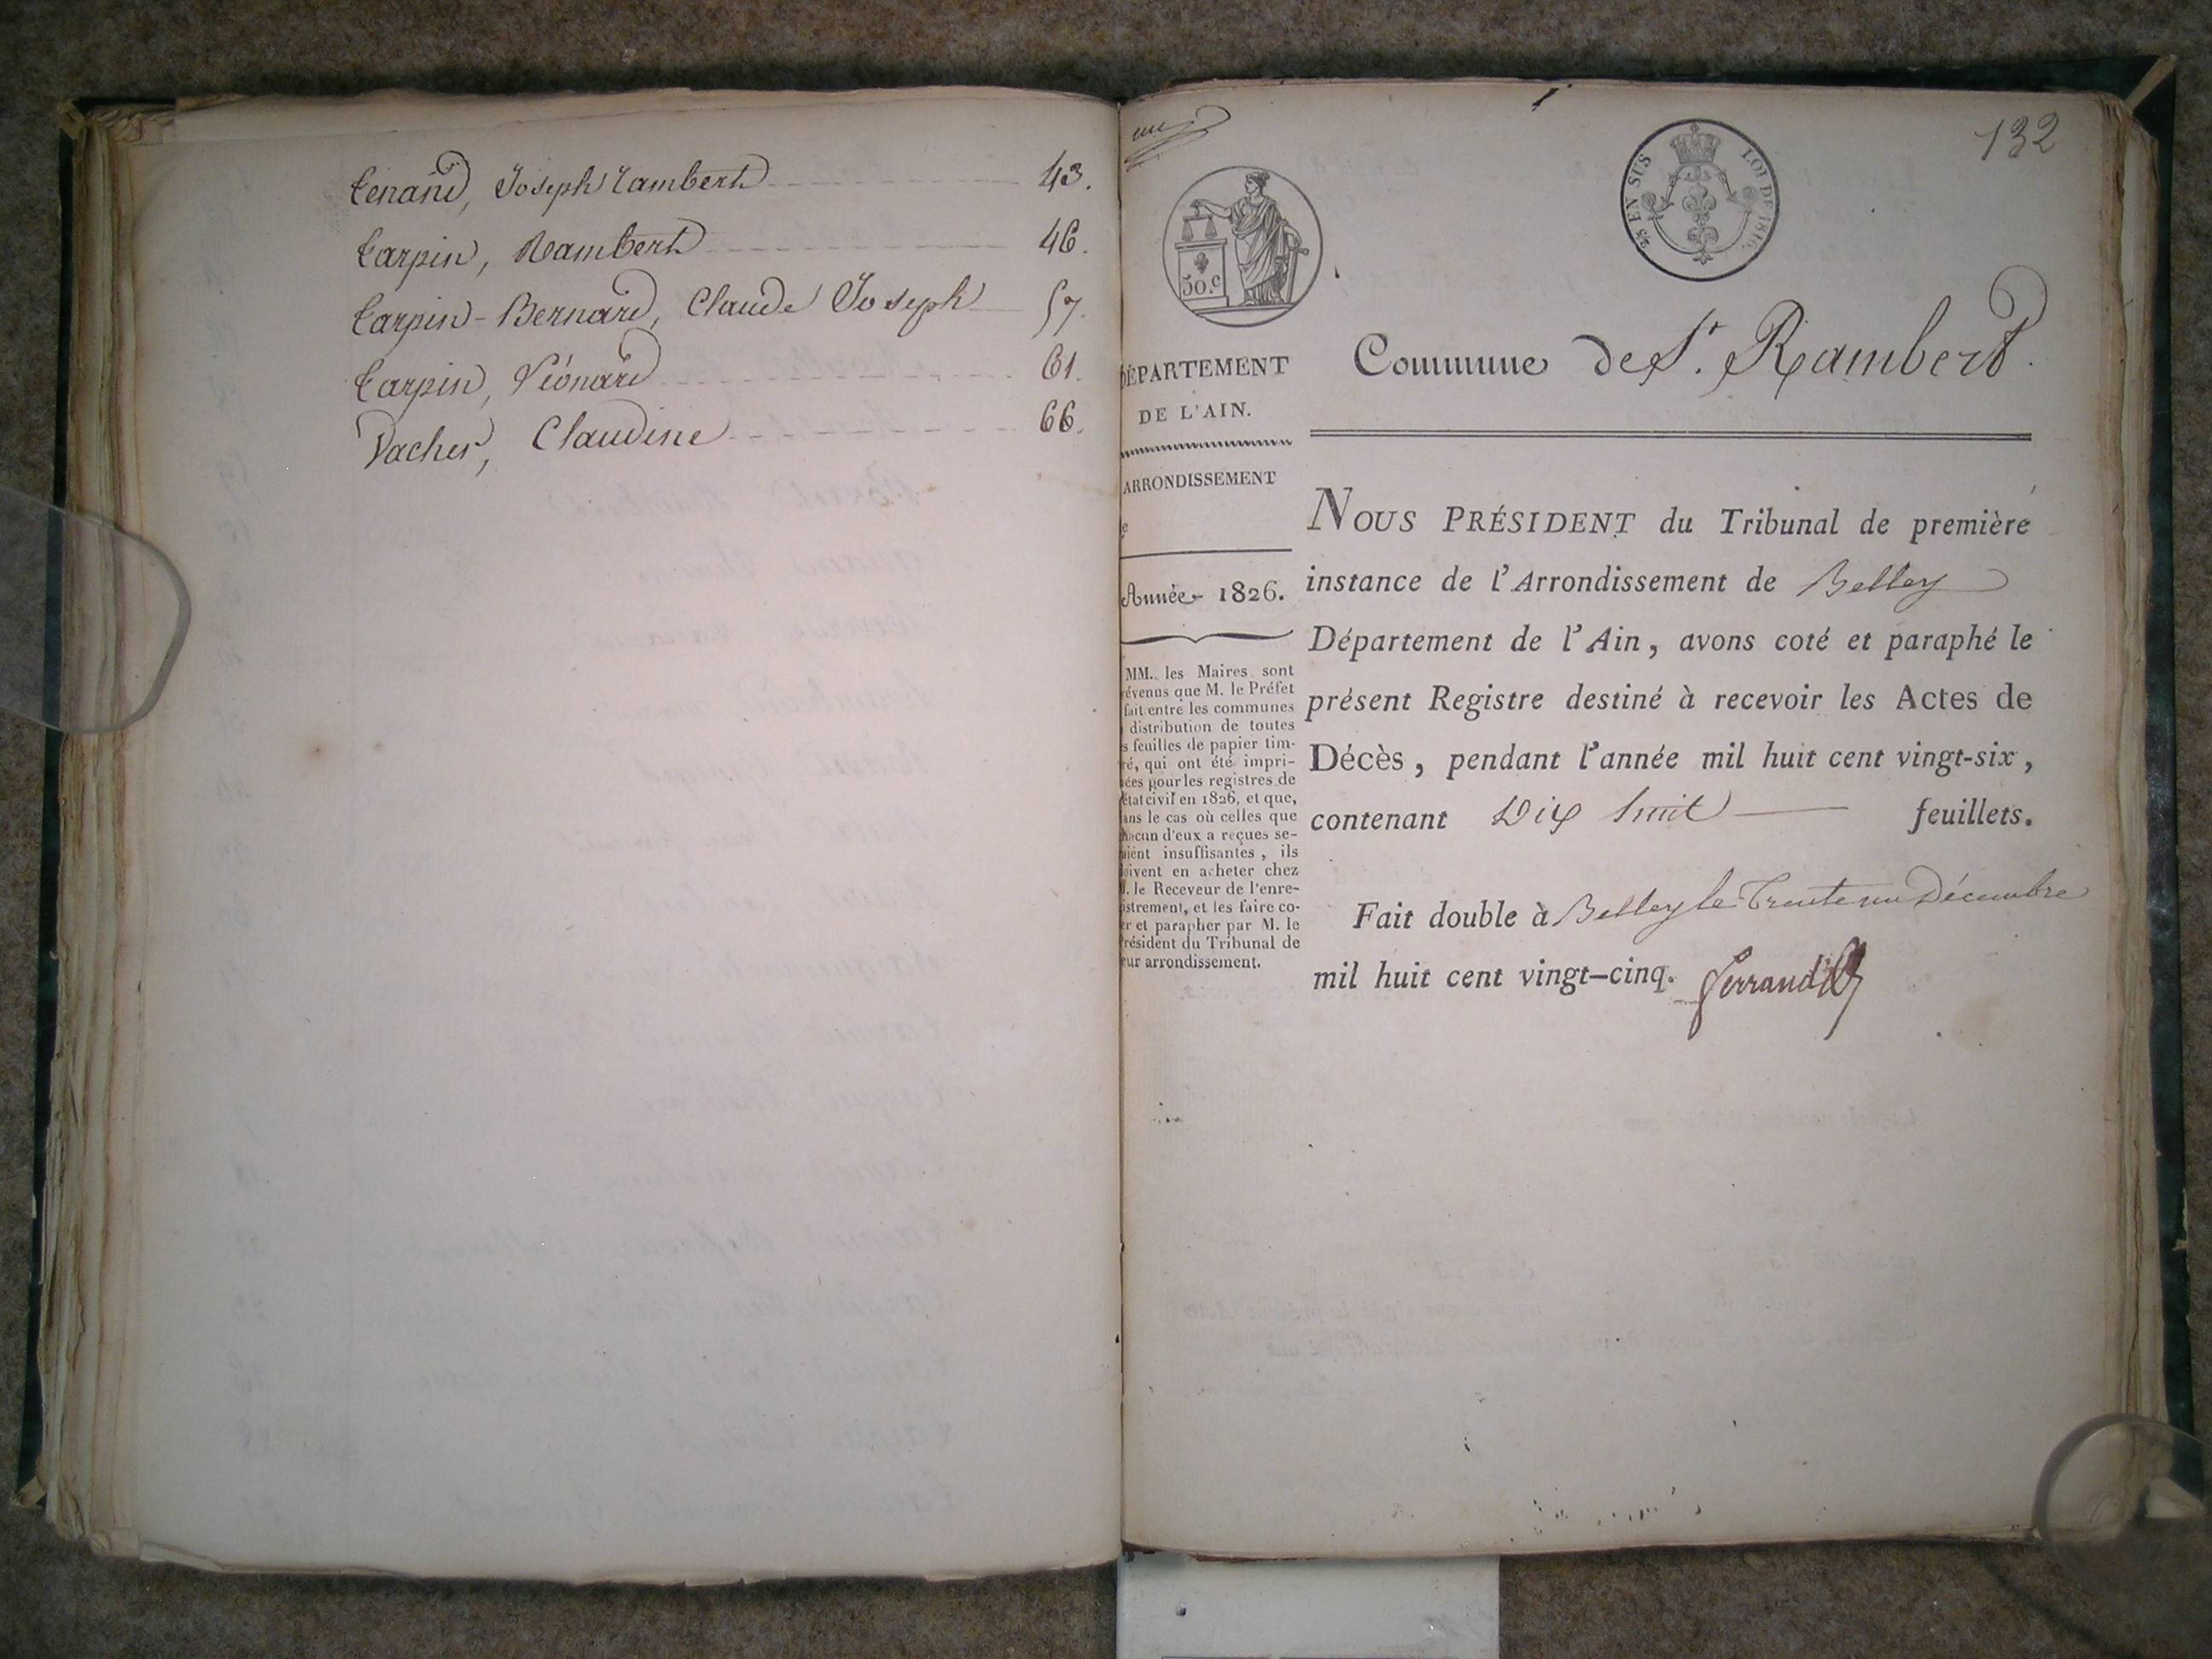 Tenand, Joseph Lambert 43.
Tarpin, Rambert 46.
Tarpin-Bernard, Claude Joseph 57.
Tarpin, Léonard 61.
Vacher, Claudine 66.
132
2/5 EN SUS
LOI DE 1816.
50.c
Commune de St. Rambert.
DÉPARTEMENT
DE L'AIN.
ARRONDISSEMENT
Année 1826.
MM. les Maires sont
révenus que M. le Préfet
fait entre les communes
distribution de toutes
s feuilles de papier tim-
ré, qui ont été impri-
ées pour les registres de
état civil en 1826, et que,
ans le cas où celles que
hacun d'eux a reçues se-
aient insuffisantes, ils
doivent en acheter chez
M. le Receveur de l'enre-
istrement, et les faire co-
er et parapher par M. le
Président du Tribunal de
eur arrondissement.
NOUS PRÉSIDENT du Tribunal de première
instance de l'Arrondissement de Belley
Département de l'Ain, avons coté et paraphé le
présent Registre destiné à recevoir les Actes de
Décès, pendant l'année mil huit cent vingt-six,
contenant Dix huit feuillets.
Fait double à Belley le Trente un Décembre
mil huit cent vingt-cinq. Ferrand